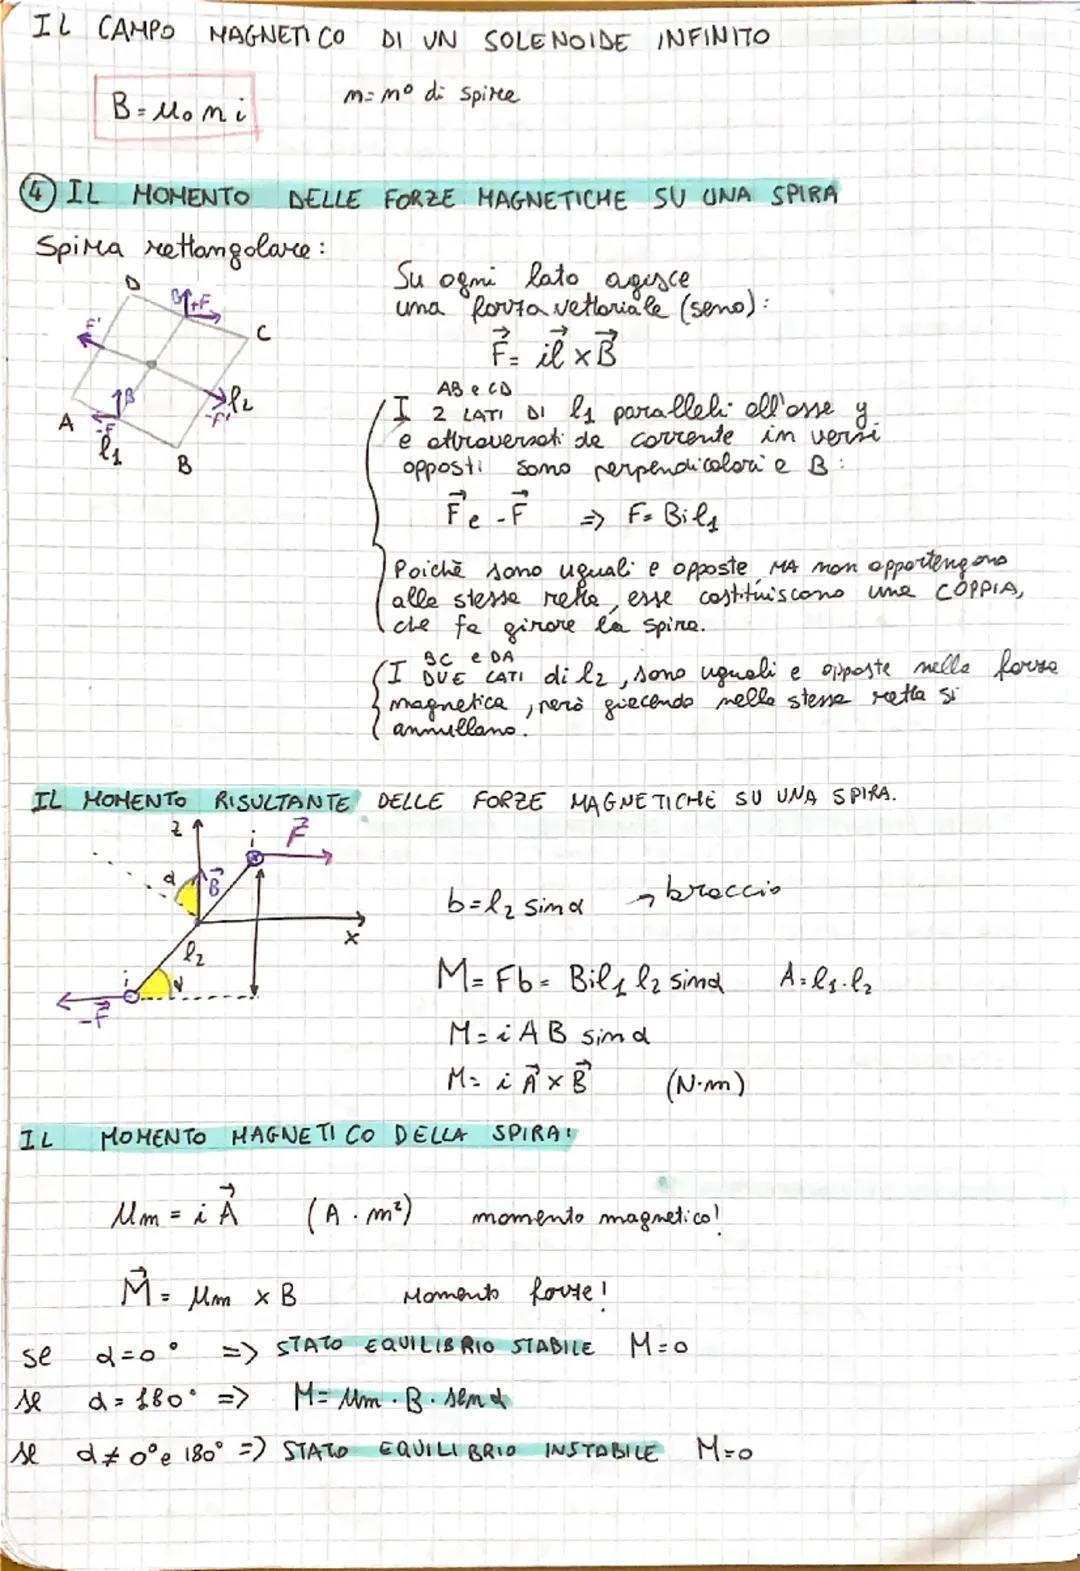 IL CAMPO MAGNETICO DI UN SOLENOIDE INFINITO
B = μ₀ n i
n = n° di spire
④ IL MOMENTO DELLE FORZE MAGNETICHE SU UNA SPIRA
Spira rettangolare:
Su ogni lato agisce
una forza vettoriale (seno):
F⃗ = i l⃗ × B⃗
D
B
+F
C
F'
A
B
-F
l₁
B
l₂
-F'
AB e CD
I 2 LATI DI l₁ paralleli all'asse y
e attraversati da corrente in versi
opposti sono perpendicolari a B:
F⃗ e -F⃗ => F = Bil₁
Poichè sono uguali e opposte, MA non appartengono
alla stessa retta, esse costituiscono una COPPIA,
che fa girare la spira.
BC e DA
I DUE LATI di l₂, sono uguali e opposte nella forza
magnetica, però giacendo nella stessa retta si
annullano.
IL MOMENTO RISULTANTE DELLE FORZE MAGNETICHE SU UNA SPIRA.
z
i
F⃗
α
B⃗
x
l₂
i
α
-F⃗
b = l₂ sin α → braccio
M = Fb = Bil₁ l₂ sin α A = l₁·l₂
M = i A B sin α
M = i A⃗ × B⃗ (N·m)
IL MOMENTO MAGNETICO DELLA SPIRA:
μm = i A⃗ (A·m²) momento magnetico!
M⃗ = μm × B Momento forze!
se α = 0° => STATO EQUILIBRIO STABILE M=0
se α = 180° => M = μm · B · sen α
se α ≠ 0° e 180° => STATO EQUILIBRIO INSTABILE M=0